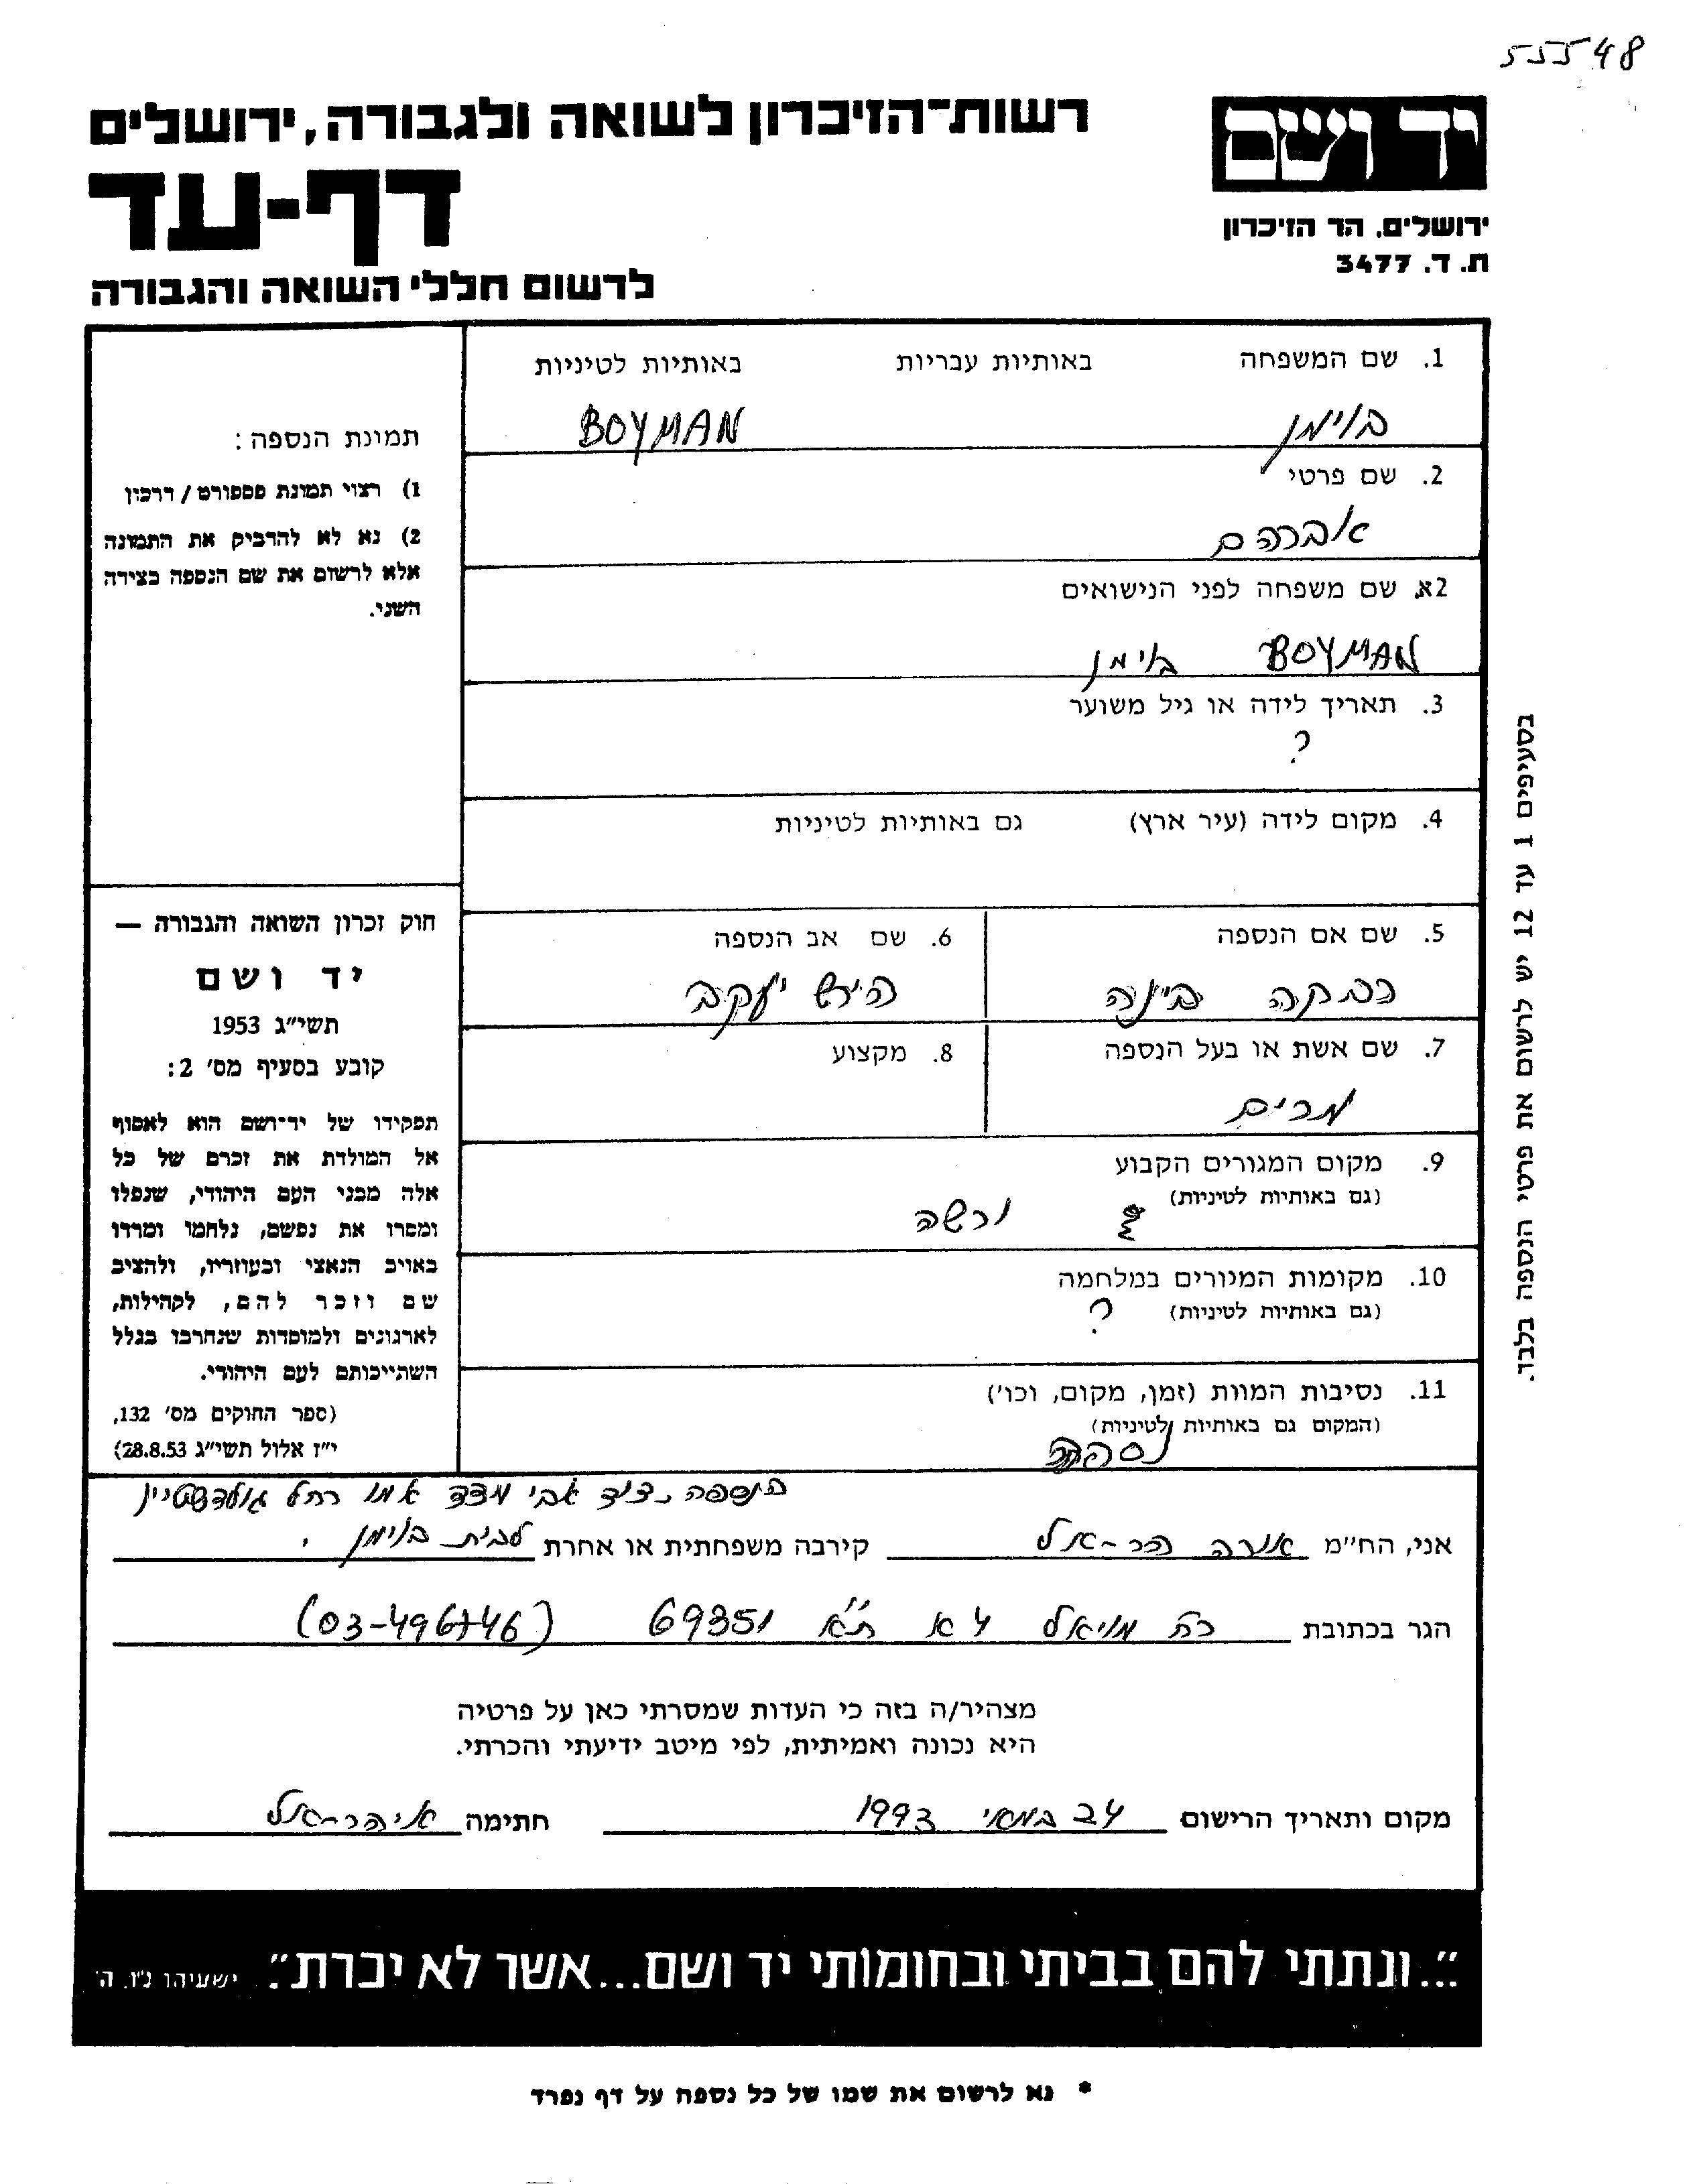 55548
יד ושם
רשות-הזיכרון לשואה ולגבורה, ירושלים
דף-עד
ירושלים. הר הזיכרון
ת. ד. 3477
לרשום חללי השואה והגבורה
1. שם המשפחה באותיות עבריות באותיות לטיניות
בוימן BOYMAN
2. שם פרטי
אברהם
2א. שם משפחה לפני הנישואים
BOYMAN בוימן
3. תאריך לידה או גיל משוער
?
4. מקום לידה (עיר ארץ) גם באותיות לטיניות
5. שם אם הנספה
רבקה בינה
6. שם אב הנספה
הירש יעקב
7. שם אשת או בעל הנספה
מרים
8. מקצוע
9. מקום המגורים הקבוע
(גם באותיות לטיניות)
ורשה
10. מקומות המגורים במלחמה
(גם באותיות לטיניות) ?
11. נסיבות המוות (זמן, מקום, וכו')
(המקום גם באותיות לטיניות)
תמונת הנספה:
1) רצוי תמונת פספורט / דרכון
2) נא לא להדביק את התמונה
אלא לרשום את שם הנספה בצידה
השני.
חוק זכרון השואה והגבורה —
יד ושם
תשי"ג 1953
קובע בסעיף מס' 2:
תפקידו של יד-ושם הוא לאסוף
אל המולדת את זכרם של כל
אלה מבני העם היהודי, שנפלו
ומסרו את נפשם, נלחמו ומרדו
באויב הנאצי ובעוזריו, ולהציב
שם וזכר להם, לקהילות,
לארגונים ולמוסדות שנחרבו בגלל
השתייכותם לעם היהודי.
(ספר החוקים מס' 132,
י"ז אלול תשי"ג 28.8.53)
בסעיפים 1 עד 12 יש לרשום את פרטי הנספה בלבד.
הנספה אבי מצד אמו רחל גולדשטיין
אני, הח"מ אורה הר-אל קירבה משפחתית או אחרת לבית בוימן.
הגר בכתובת רח 4א ת"א 69351 (03-496746)
מצהיר/ה בזה כי העדות שמסרתי כאן על פרטיה
היא נכונה ואמיתית, לפי מיטב ידיעתי והכרתי.
מקום ותאריך הרישום 24 במאי 1993 חתימה א. הר-אל
"...ונתתי להם בביתי ובחומותי יד ושם...אשר לא יכרת". ישעיהו נ"ו, ה'
* נא לרשום את שמו של כל נספה על דף נפרד